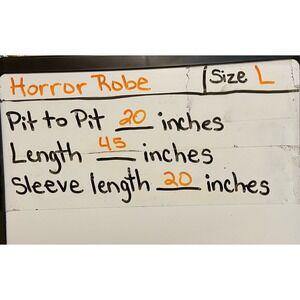 Horror Robe Size L
Pit to Pit 20 inches
Length 45 inches
Sleeve length 20 inches